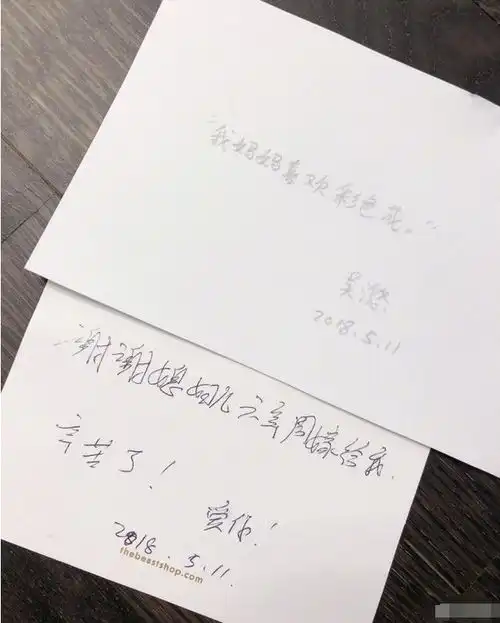 "我妈妈喜欢彩色花。"
吴
2018.5.11
谢谢媳妇儿六年周嫁给我.
辛苦了!
爱你!
2018.5.11.
thebeastshop.com